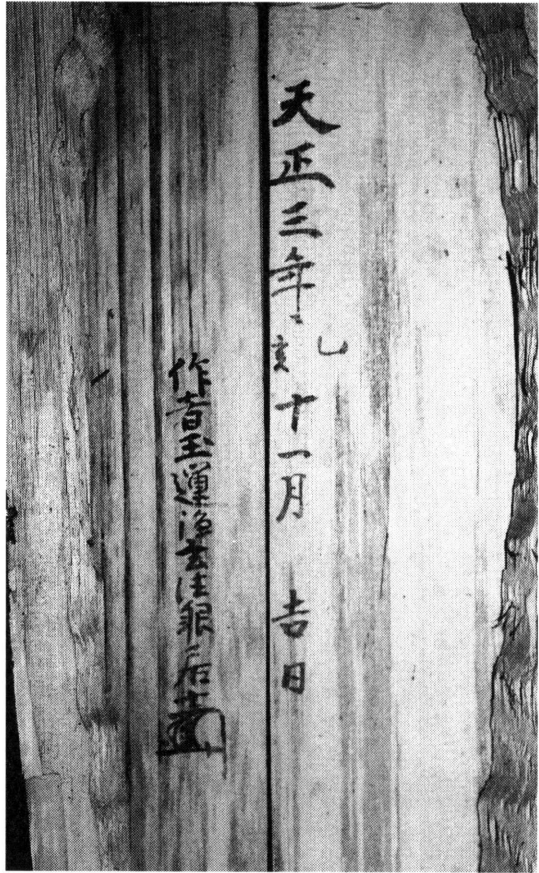 天正三年乙亥十一月 吉日
作者玉運法眼